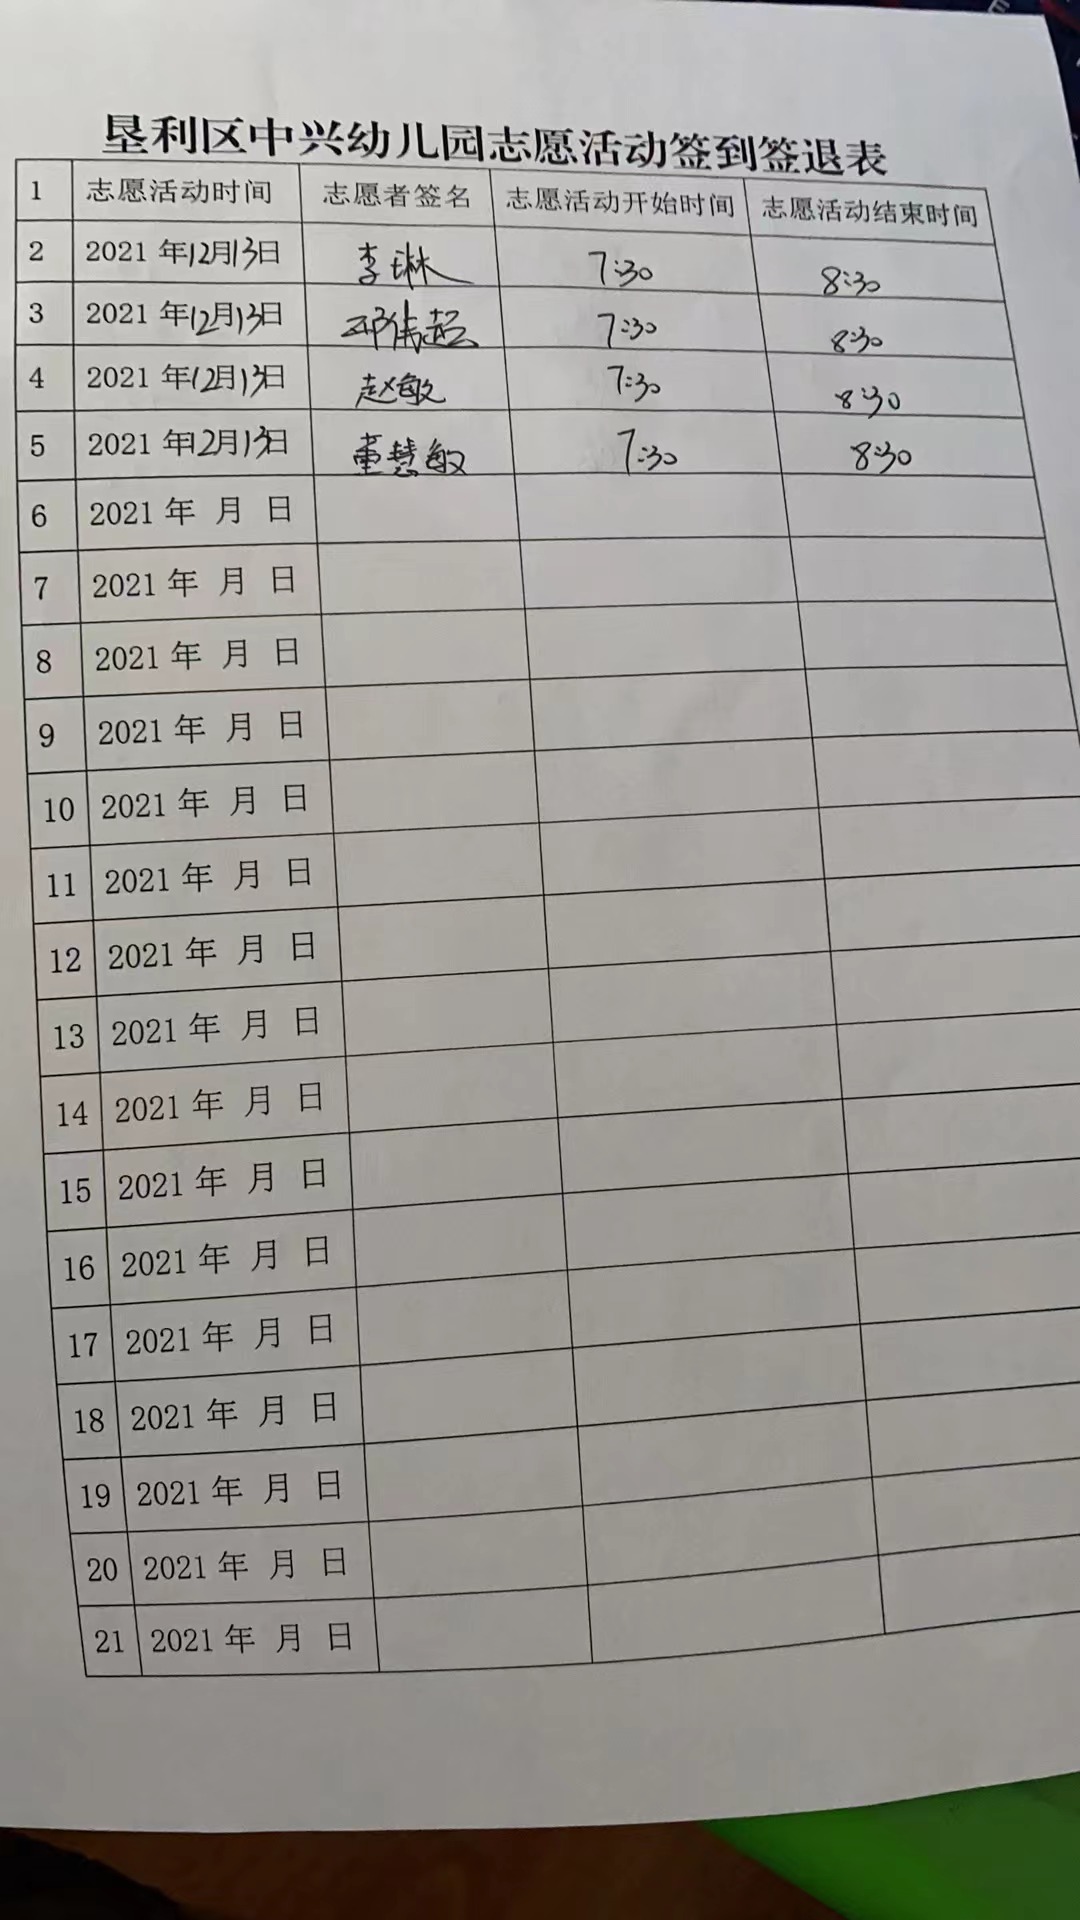 垦利区中兴幼儿园志愿活动签到签退表
1 志愿活动时间 志愿者签名 志愿活动开始时间 志愿活动结束时间
2 2021年12月13日 李琳 7:30 8:30
3 2021年12月13日 邓伟超 7:30 8:30
4 2021年12月13日 赵敏 7:30 8:30
5 2021年12月13日 董慧敏 7:30 8:30
6 2021年 月 日
7 2021年 月 日
8 2021年 月 日
9 2021年 月 日
10 2021年 月 日
11 2021年 月 日
12 2021年 月 日
13 2021年 月 日
14 2021年 月 日
15 2021年 月 日
16 2021年 月 日
17 2021年 月 日
18 2021年 月 日
19 2021年 月 日
20 2021年 月 日
21 2021年 月 日